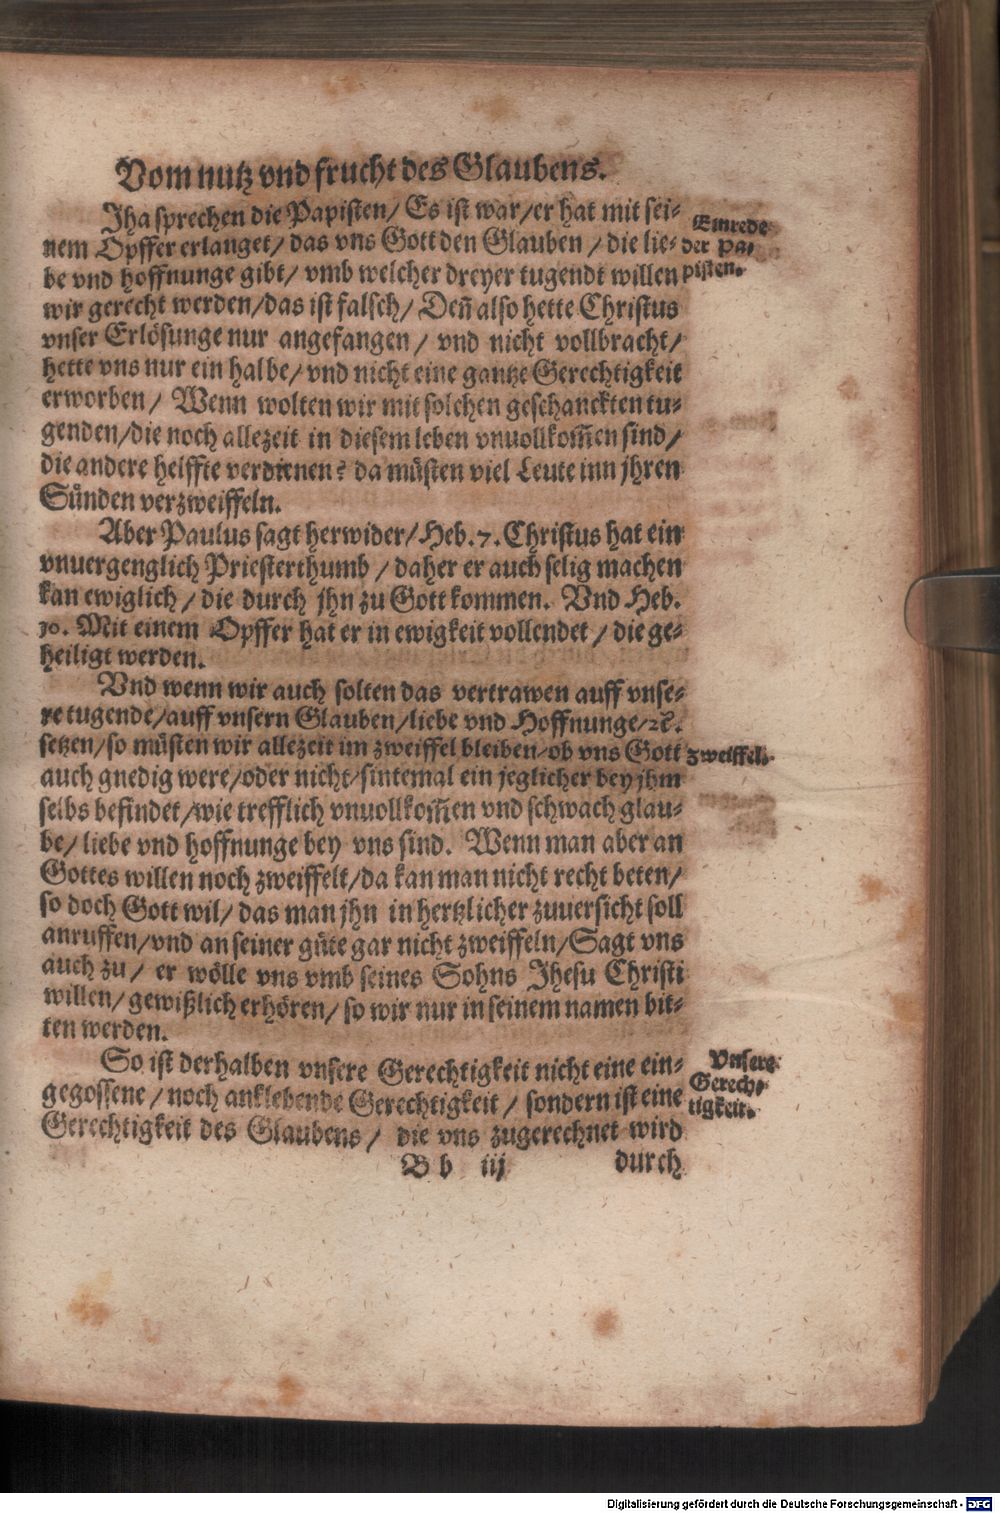 Vom nutz vnd frucht des Glaubens.
Jha sprechen die Papisten/ Es ist war/er hat mit sei-
nem Opffer erlanget/ das vns Gott den Glauben / die lie-
be vnd hoffnunge gibt/ vmb welcher dreyer tugendt willen
wir gerecht werden/das ist falsch/ Deñ also hette Christus
vnser Erlösunge nur angefangen / vnd nicht vollbracht/
hette vns nur ein halbe/ vnd nicht eine gantze Gerechtigkeit
erworben / Wenn wolten wir mit solchen geschanckten tu-
genden/die noch allezeit in diesem leben vnuollkom̃en sind/
die andere helffte verdienen? da müsten viel Leute inn jhren
Sünden verzweiffeln.
Einrede
der Pa-
pisten.
Aber Paulus sagt herwider/ Heb. 7. Christus hat ein
vnuergenglich Priesterthumb / daher er auch selig machen
kan ewiglich / die durch jhn zu Gott kommen. Vnd Heb.
10. Mit einem Opffer hat er in ewigkeit vollendet / die ge-
heiligt werden.
Vnd wenn wir auch solten das vertrawen auff vnse-
re tugende/auff vnsern Glauben/liebe vnd Hoffnunge/ꝛc.
setzen/so müsten wir allezeit im zweiffel bleiben/ob vns Gott
auch gnedig were/oder nicht/sintemal ein jeglicher bey jhm
selbs befindet/wie trefflich vnuollkom̃en vnd schwach glau-
be/ liebe vnd hoffnunge bey vns sind. Wenn man aber an
Gottes willen noch zweiffelt/da kan man nicht recht beten/
so doch Gott wil/ das man jhn in hertzlicher zuuersicht soll
anruffen/vnd an seiner güte gar nicht zweiffeln/Sagt vns
auch zu / er wölle vns vmb seines Sohns Jhesu Christi
willen/ gewißlich erhören/ so wir nur in seinem namen bit-
ten werden.
Zweiffel.
So ist derhalben vnsere Gerechtigkeit nicht eine ein-
gegossene / noch anklebende Gerechtigkeit / sondern ist eine
Gerechtigkeit des Glaubens / die vns zugerechnet wird
Vnsere
Gerech-
tigkeit.
B b iij durch
Digitalisierung gefördert durch die Deutsche Forschungsgemeinschaft - DFG